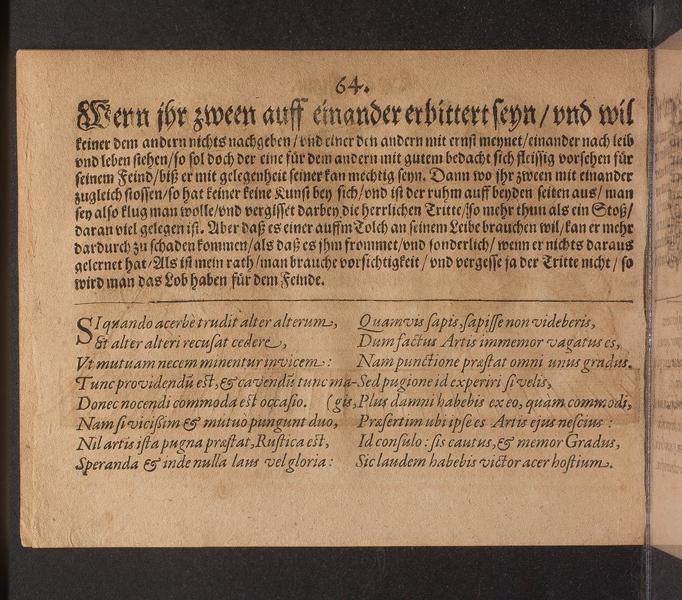 64.
Wenn jhr zween auff einander erbittert seyn / vnd wil
keiner dem andern nichts nachgeben / vnd einer den andern mit ernst meynet / einander nach leib
vnd leben stehen / so sol doch der eine für dem andern mit gutem bedacht sich fleissig vorsehen für
seinem Feind / biß er mit gelegenheit seiner kan mechtig seyn. Dann wo jhr zween mit einander
zugleich stossen / so hat keiner keine Kunst bey sich / vnd ist der ruhm auff beyden seiten aus / man
sey also klug man wolle / vnd vergisset darbey die herrlichen Tritte / so mehr thun als ein Stoß /
daran viel gelegen ist. Aber daß es einer auffm Tolch an seinem Leibe brauchen wil / kan er mehr
dardurch zu schaden kommen / als daß es jhm frommet / vnd sonderlich / wenn er nichts daraus
gelernet hat / Als ist mein rath / man brauche vorsichtigkeit / vnd vergesse ja der Tritte nicht / so
wird man das Lob haben für dem Feinde.
SI quando acerbè trudit alter alterum,
Et alter alteri recusat cedere,
Vt mutuam necem minentur invicem :
Tunc providendū est, & cavendū tunc ma-
Donec nocendi commoda est occasio. (gis,
Nam si vicissim & mutuò pungunt duo,
Nil artis ista pugna præstat, Rustica est,
Speranda & inde nulla laus vel gloria :
Quamvis sapis, sapisse non videberis,
Dum factus Artis immemor vagatus es,
Nam punctione præstat omni unus gradus.
Sed pugione id experiri si velis,
Plus damni habebis ex eo, quàm commodi,
Præsertim ubi ipse es Artis ejus nescius :
Id consulo : sis cautus, & memor Gradus,
Sic laudem habebis victor acer hostium.